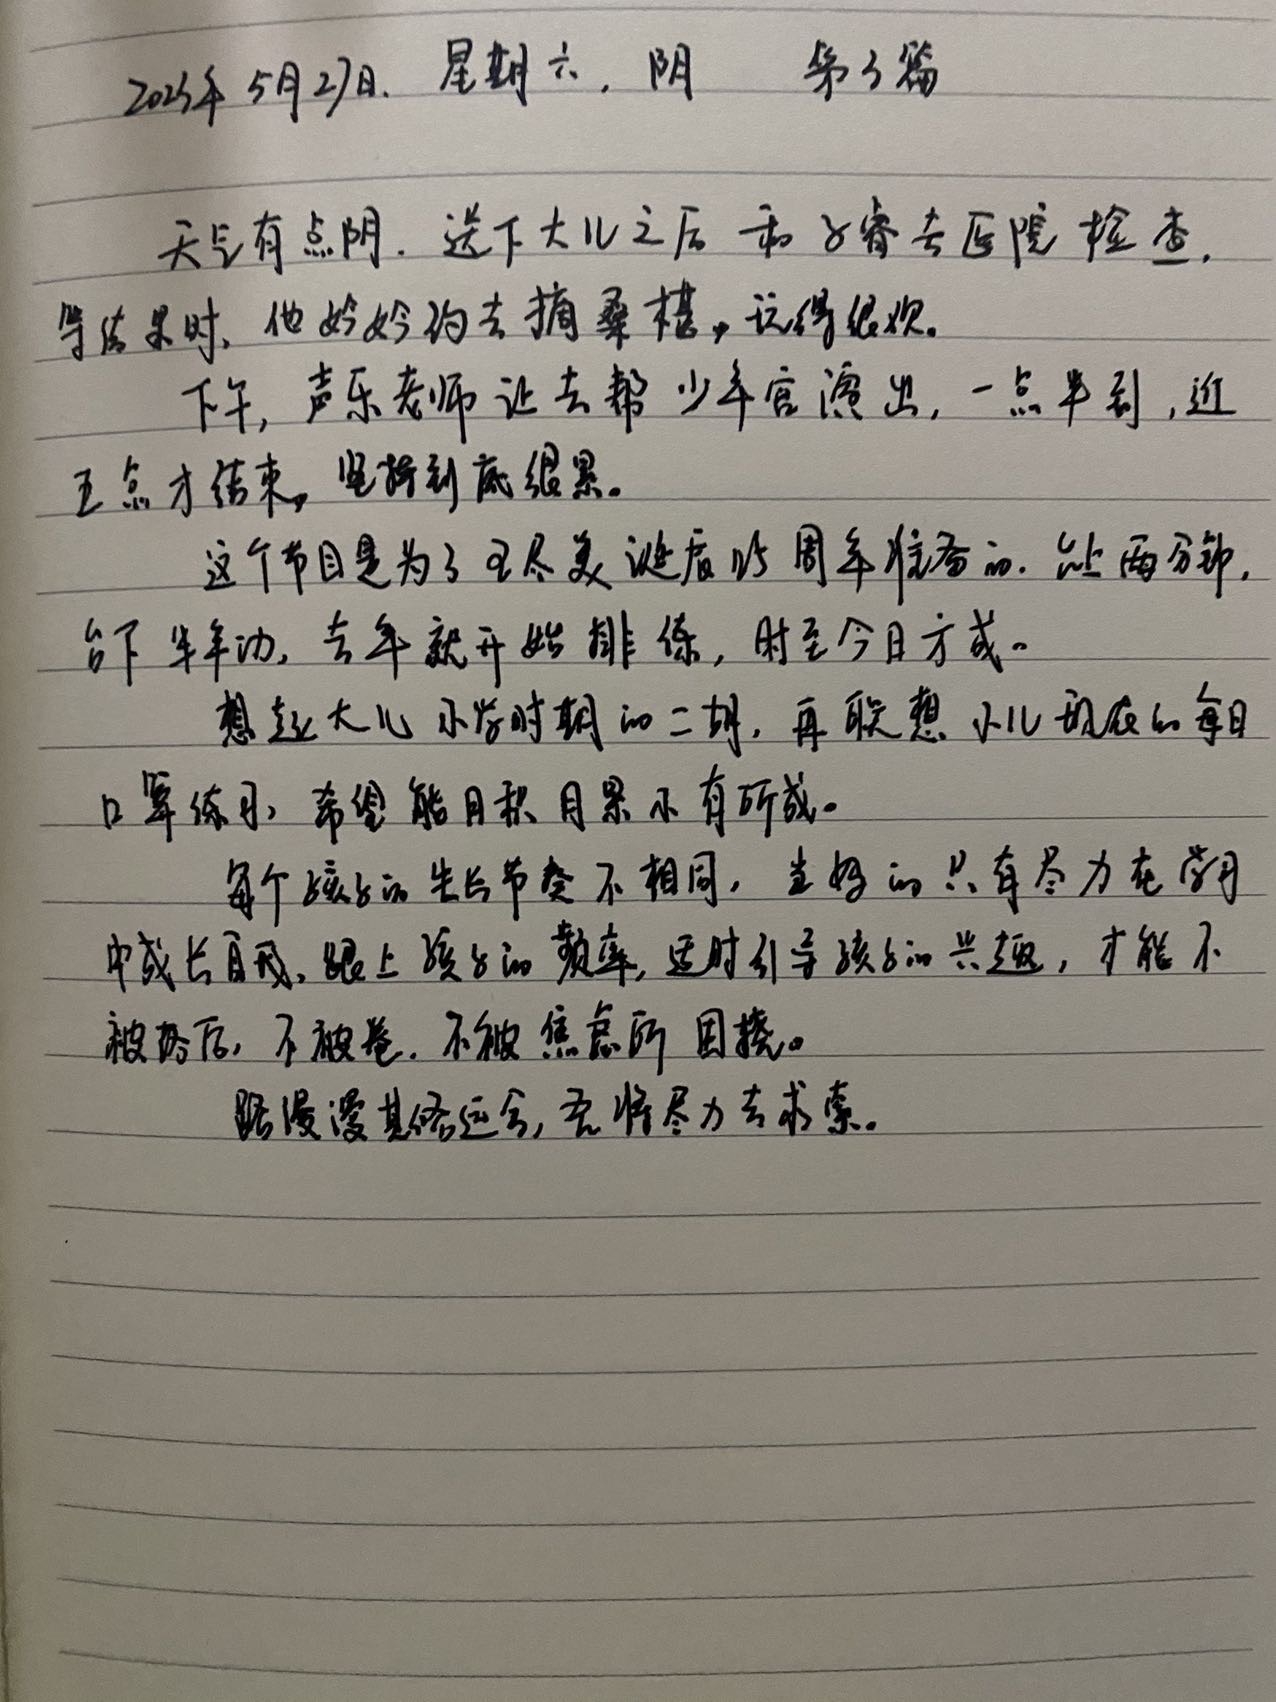 2023年5月27日. 星期六. 阴 第3篇
天气有点阴. 送下大儿之后和子睿去医院检查.
等结果时, 他妗妗约去摘桑椹, 玩得很欢。
下午, 声乐老师让去帮少年宫演出, 一点半到, 近
五点才结束, 坚持到底很累。
这个节目是为了王尽美诞辰125周年准备的. 台上两分钟,
台下半年功, 去年就开始排练, 时至今日方成。
想起大儿小学时期的二胡, 再联想小儿现在的每日
口算练习, 希望能日积月累小有所成。
每个孩子的生长节奏不相同, 当妈的只有尽力在学习
中成长自我, 跟上孩子的频率, 适时引导孩子的兴趣, 才能不
被落后, 不被卷. 不被焦虑所困扰。
路漫漫其修远兮, 吾将尽力去求索。